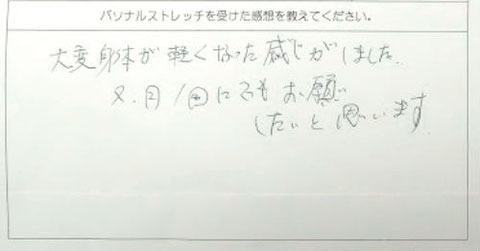 パソナルストレッチを受けた感想を教えてください。
大変身体が軽くなった感じがしました.
又.月1回にでもお願い
したいと思います